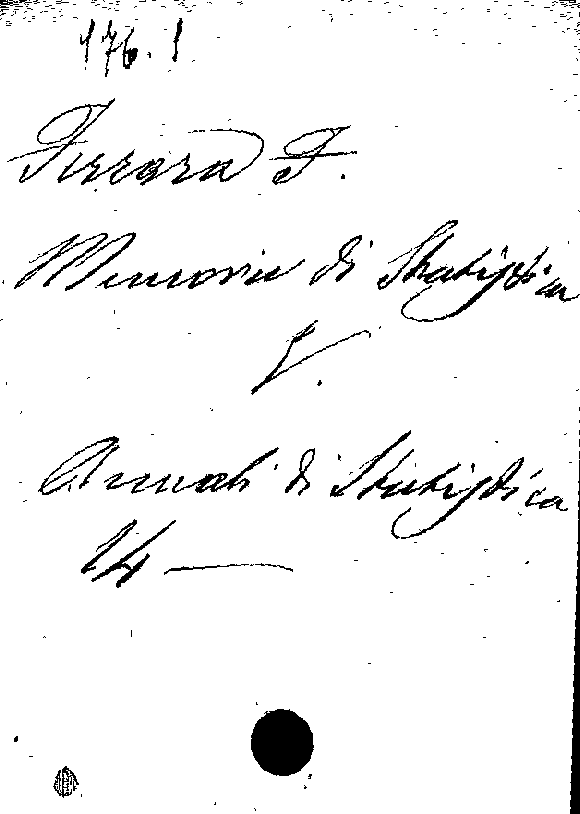 176.1
Ferrara F.
Memorie di Statistica
V.
Annali di Statistica
14 —